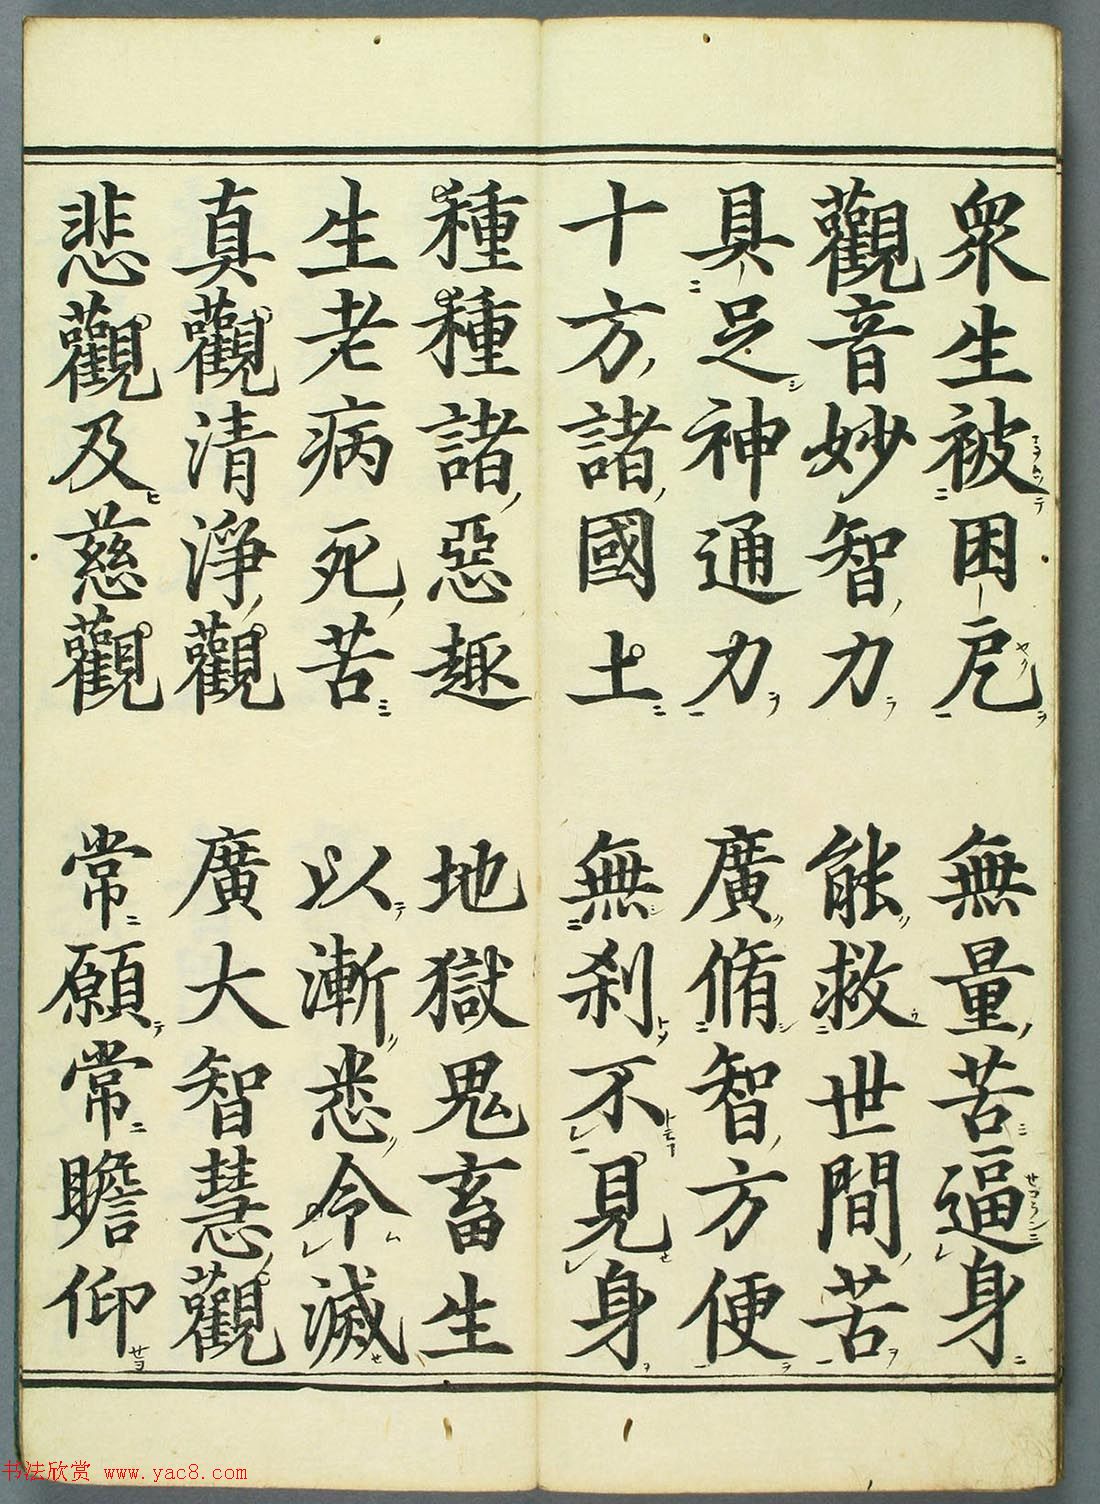 衆生被困厄　無量苦逼身
觀音妙智力　能救世間苦
具足神通力　廣脩智方便
十方諸國土　無刹不見身
種種諸惡趣　地獄鬼畜生
生老病死苦　以漸悉令滅
真觀清淨觀　廣大智慧觀
悲觀及慈觀　常願常瞻仰
书法欣赏 www.yac8.com